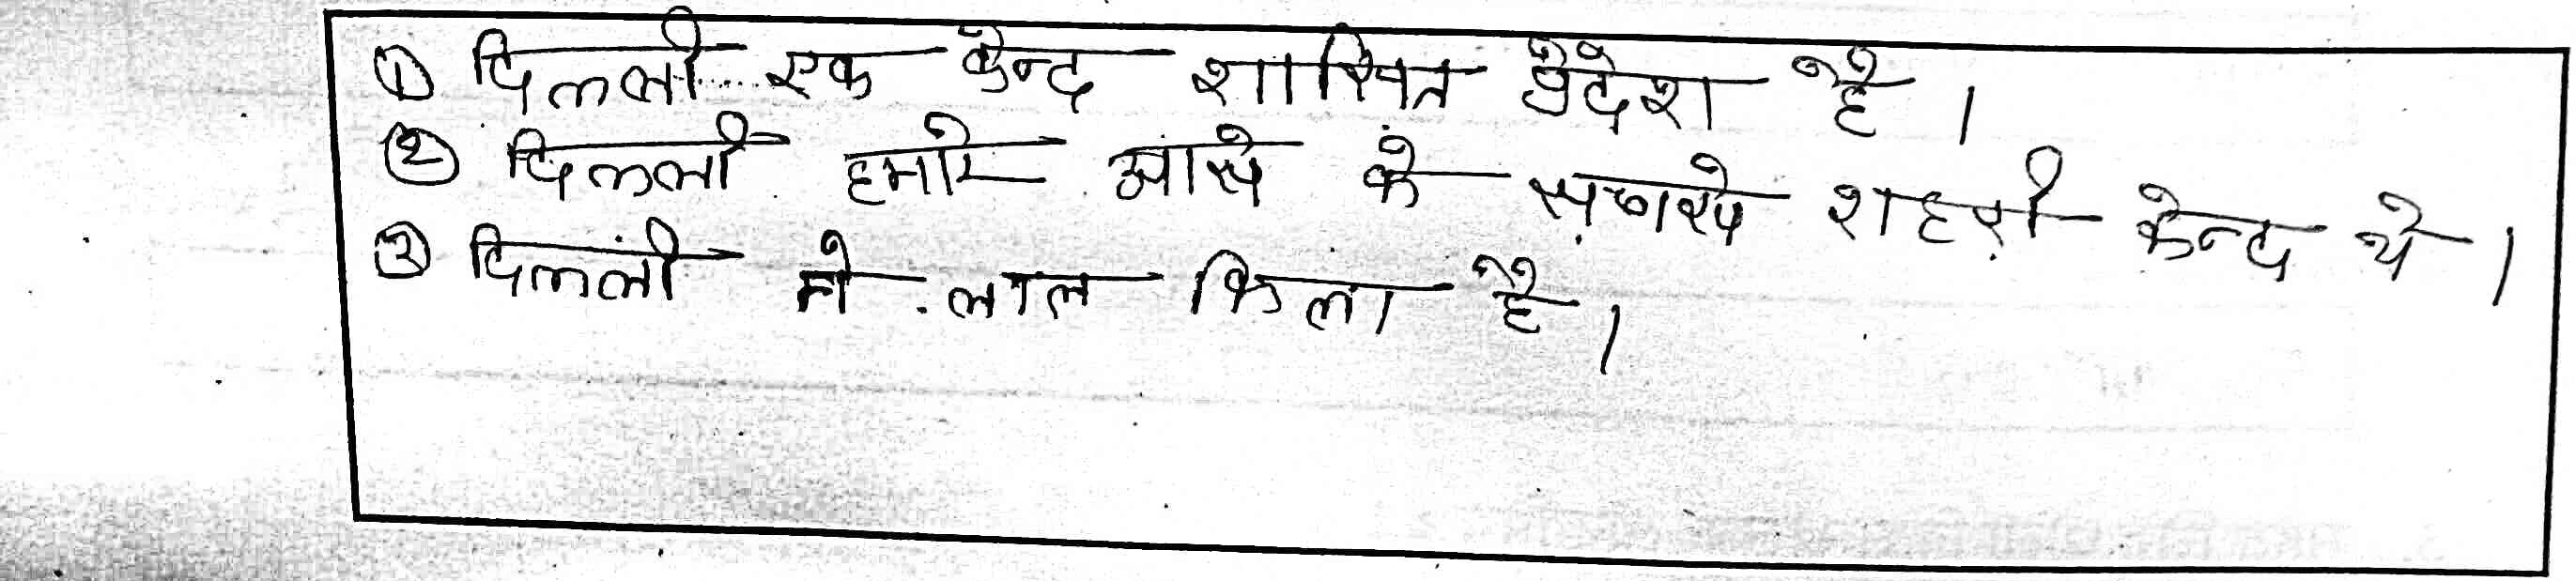 ① दिलली एक केन्द शासित प्रेदेश है ।
② दिलली हमारे के शहरी केन्द थे ।
③ दिलली मे लाल किला है ।